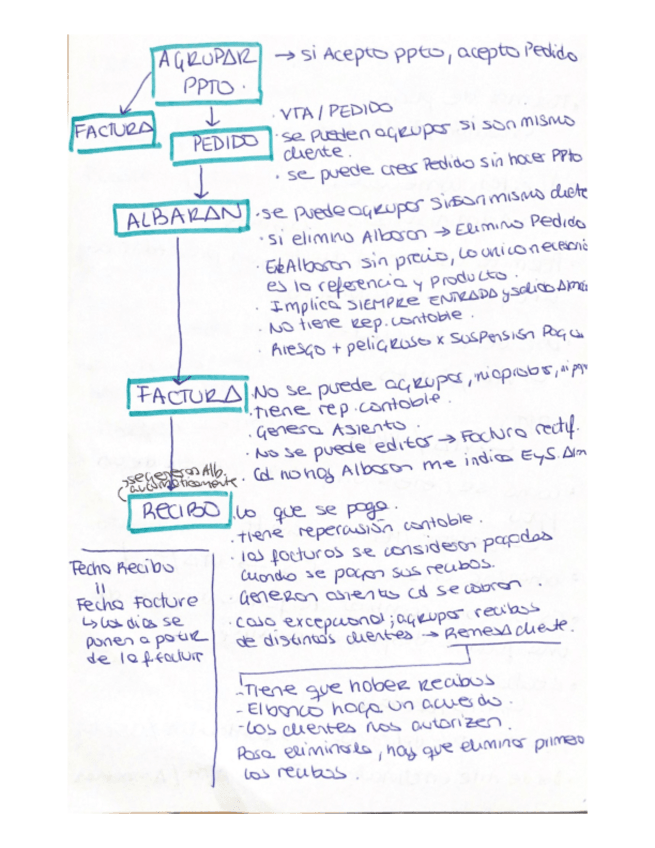 AGRUPAR
PPTO.
→ si Acepto ppto, acepto Pedido
FACTURA
PEDIDO
· VTA / PEDIDO
· se pueden agrupar si son mismo
cliente.
· se puede crear Pedido sin hacer PPto
ALBARAN
· se puede agrupar si son mismo cliete
· si elimino Albaran → Elimino Pedido
· El Albaran sin precio, lo unico necesari
es la referencia y producto.
· Implica SIEMPRE ENTRADA y salida Almá
· NO tiene rep. contable.
· Riesgo + peligroso x suspensión Pagos
FACTURA
· No se puede agrupar, ni aprobar, ni
· tiene rep. contable.
· Genera Asiento.
· No se puede editar → Factura rectif.
· Cd no hay Albaran me indica E y S. Alm
(se generan Alb.
automáticamente
RECIBO
· Lo que se paga.
· tiene repercusión contable.
· las facturas se consideran pagadas
cuando se pagan sus recibos.
· Generan asiento cd se cobran
· caso excepcional; agrupar recibos
de distintos clientes → Remesa cliente.
Fecha Recibo
=
Fecha Facture
↳ Los días se
ponen a partir
de la f. factur
- Tiene que haber recibos
- El banco haga un acuerdo.
- Los clientes nos autorizen.
Para eliminarla, hay que eliminar primero
los recibos.